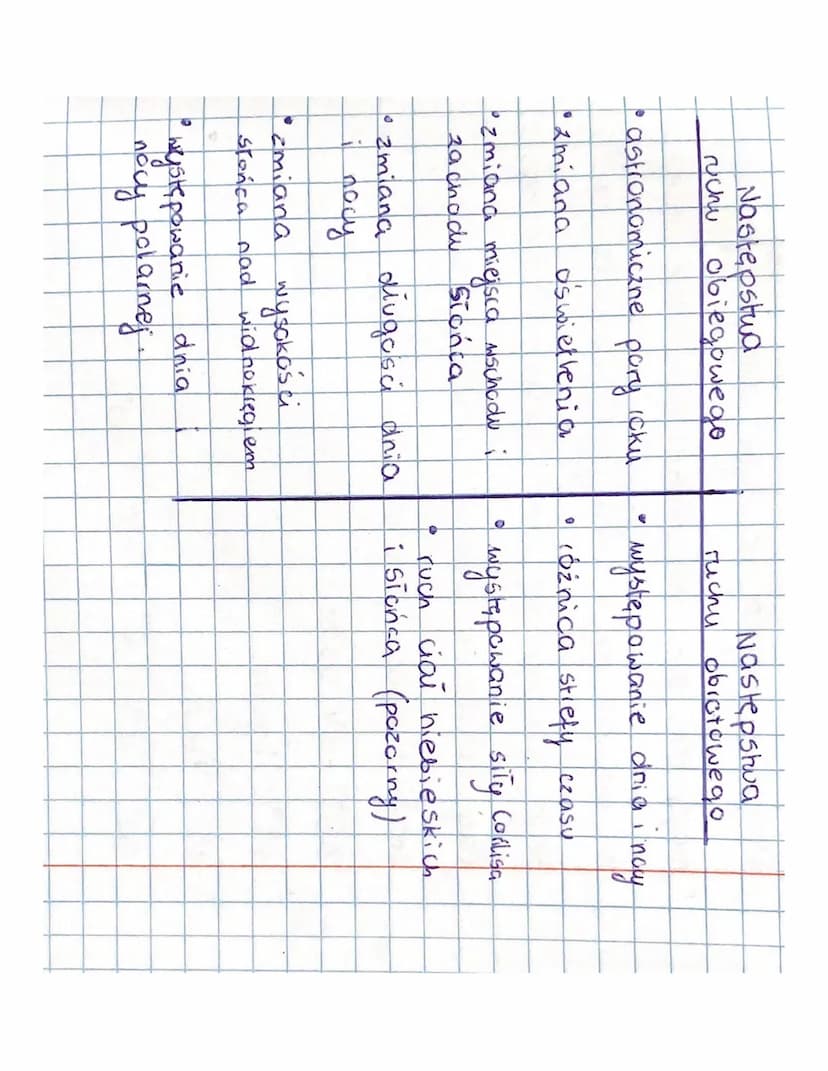 Następstwa
ruchu obiegowego
• astronomiczne pory roku
• zmiana oświetlenia
• zmiana miejsca wschodu i
zachodu Słońca
• zmiana długości dnia
i nocy
• zmiana wysokości
słońca nad widnokręgiem
• występowanie dnia i
nocy polarnej.
Następstwa
ruchu obrotowego
• występowanie dnia i nocy
• różnica strefy czasu
• występowanie siły Corilisa
• ruch ciał niebieskich
i Słońca (pozorny)